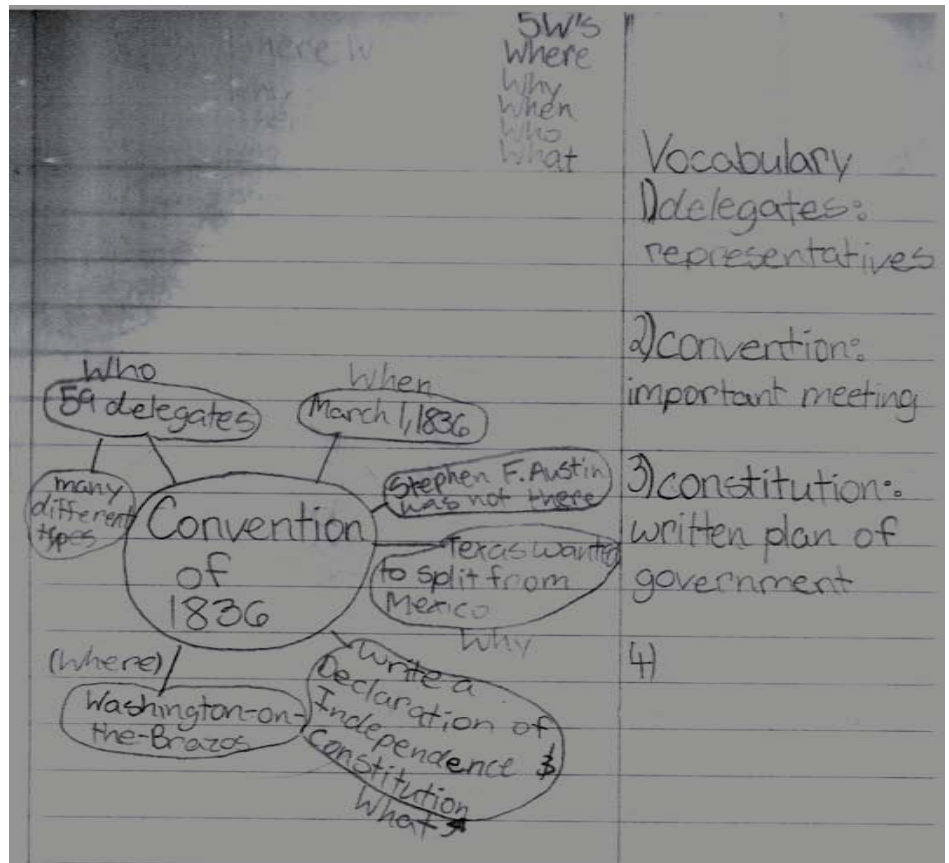 5W's
Where
Why
When
Who
What
Who
59 delegates
many
different
types
When
March 1, 1836
Stephen F. Austin
was not there
Texas wanted
to split from
Mexico
Why
Convention
of
1836
(Where)
Washington-on-
the-Brazos
Write a
Declaration of
Independence &
Constitution
What
Vocabulary
1) delegates:
representatives
2) convention:
important meeting
3) constitution:
written plan of
government
4)